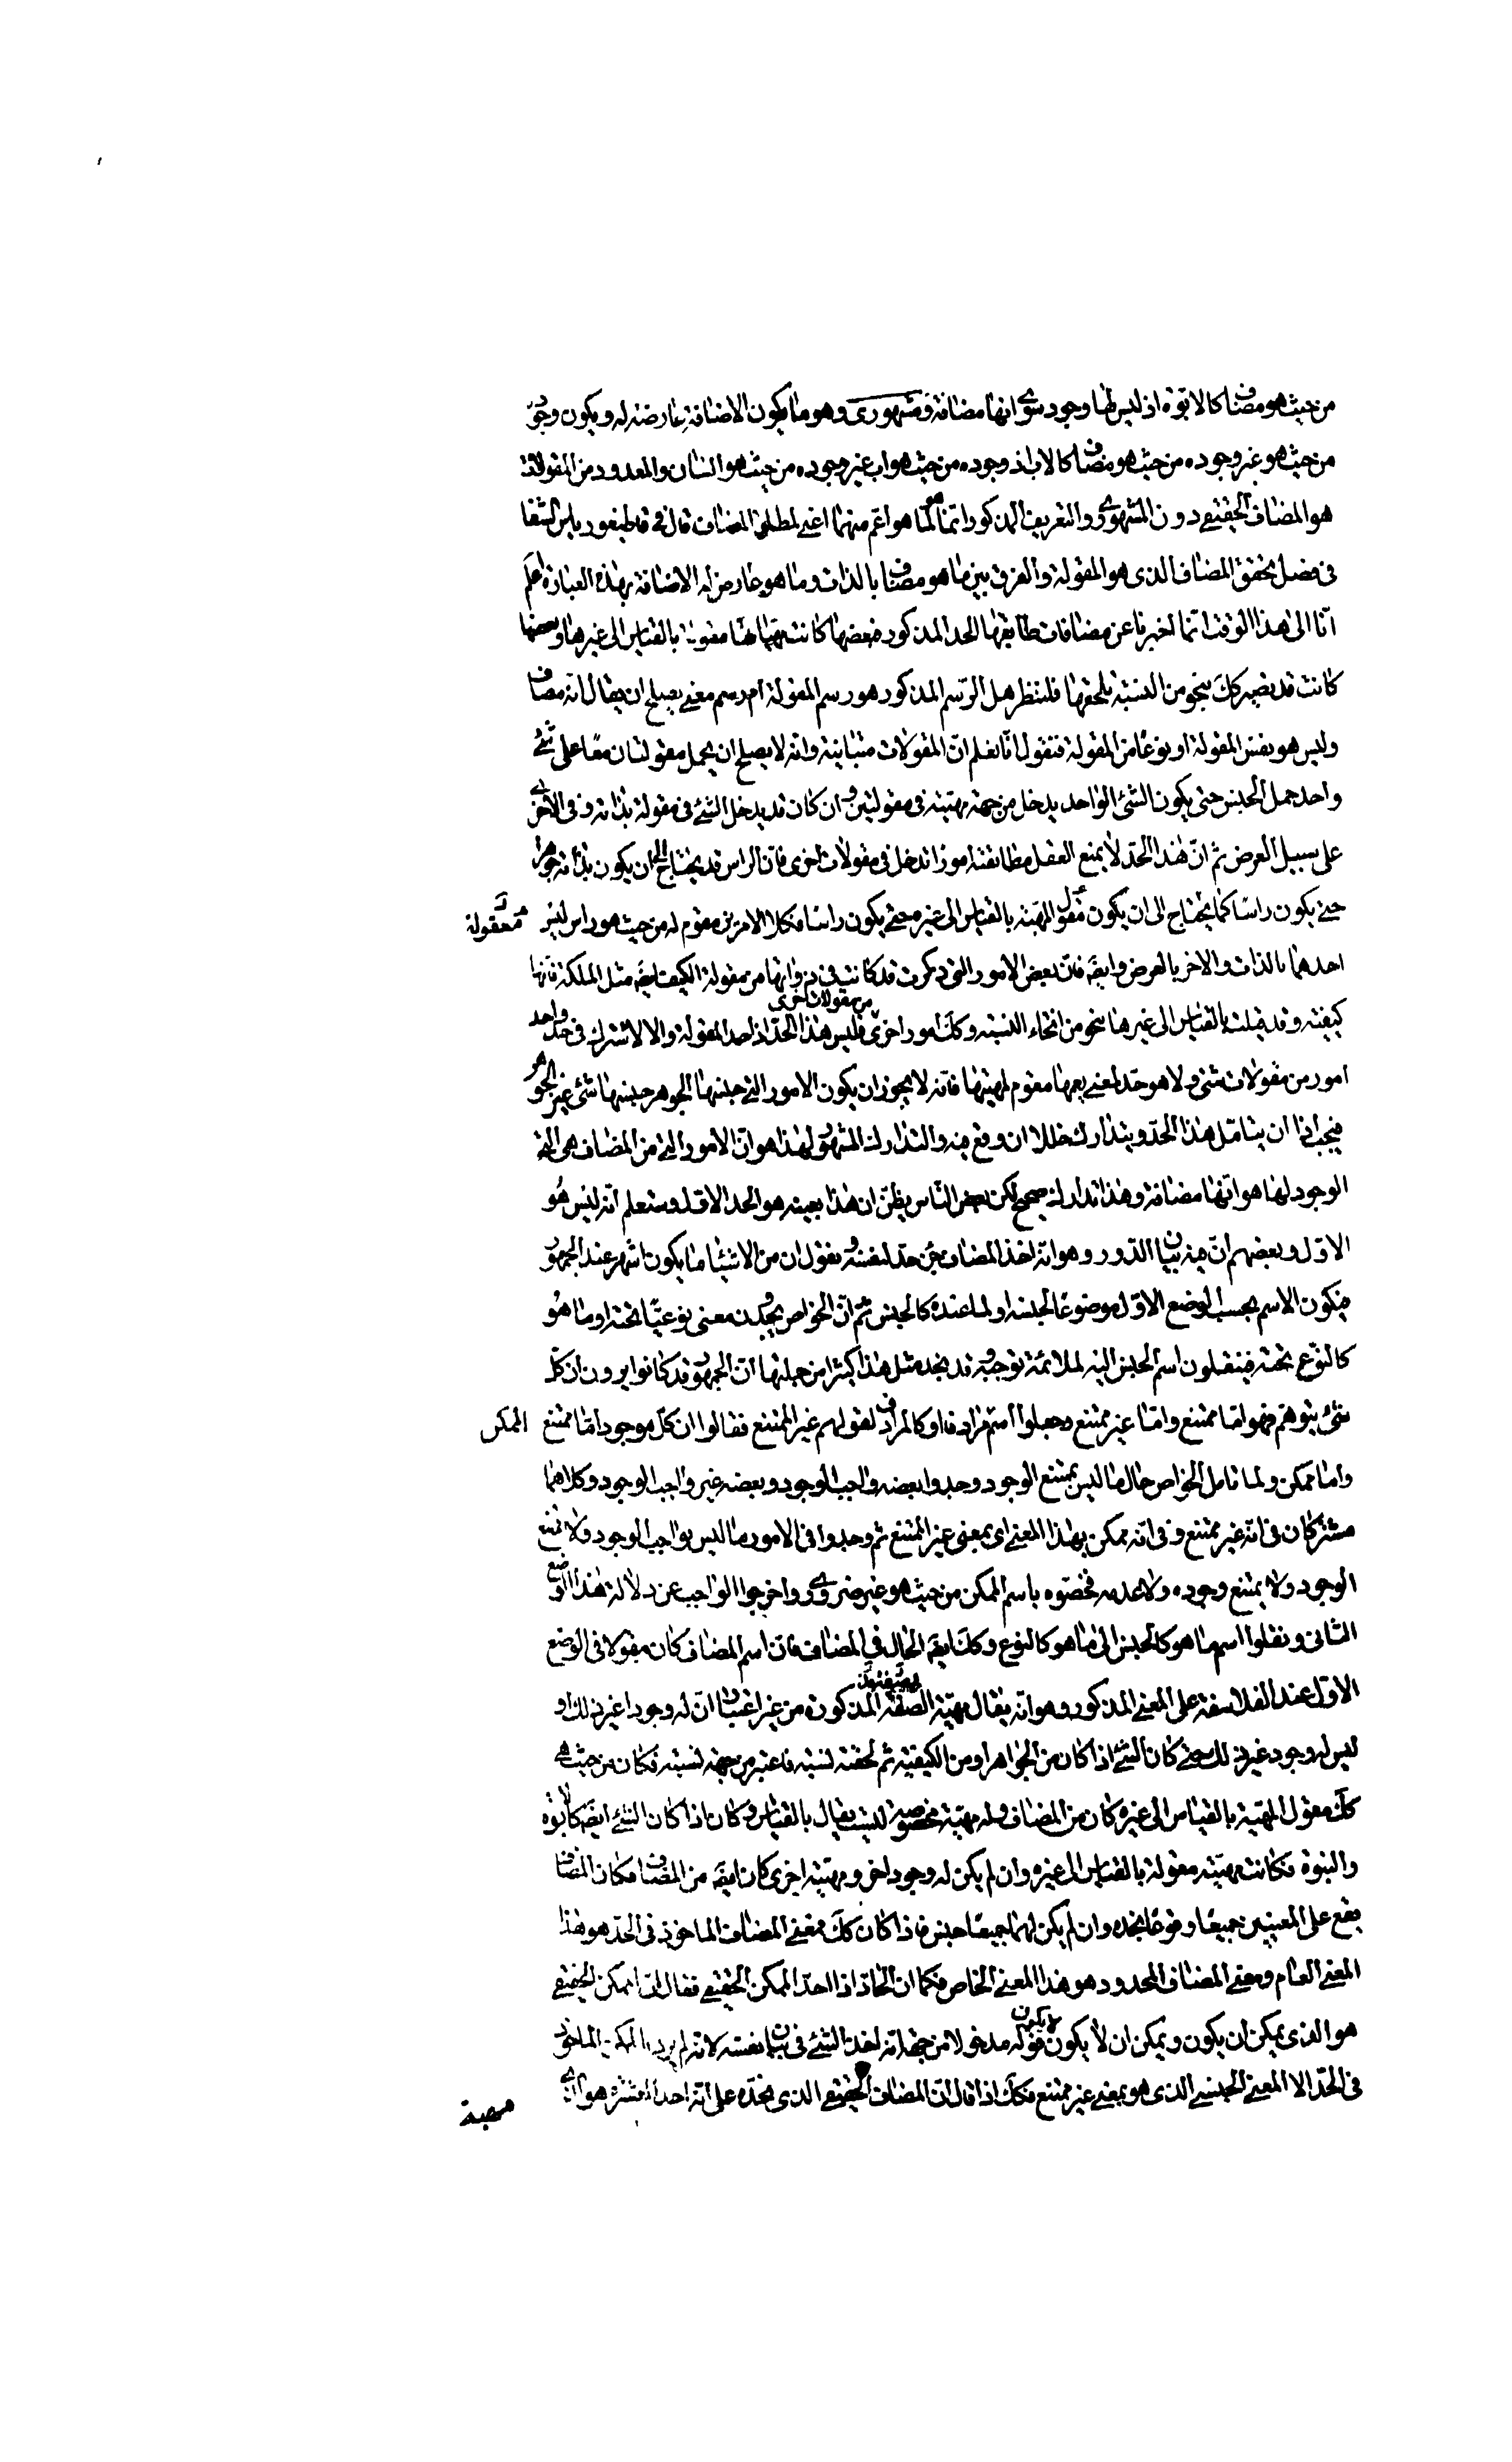 من حيث هو مضاف كالابوة اذ ليس لها وجود سوى انها مضافة ومشهورى وهو ما يكون الاضافة عارضة له ويكون وجوده
من حيث هو غير وجوده من حيث هو مضاف كالاب اذ وجوده من حيث هو اب غير وجوده من حيث هو انسان والمعدود من المقولة
هو المضاف الحقيقى دون المشهورى والتعريف المذكور انما هو لما هو اعم منهما اعنى لمطلق المضاف قال فى قاطيغورياس الشفا
فى فصل تحقق المضاف الذى هو المقولة والفرق بين ما هو مضاف بالذات وما هو عارض له الاضافة بهذه العبارة اعلم
انا الى هذا الوقت انما اخبرنا عن مضافات طابقها الحد المذكور فبعضها كانت مهياتها مقولة بالقياس الى غيرها وبعضها
كانت قد يصير كك بنحو من النسبة يلحقها فلننظر هل الرسم المذكور هو رسم المقولة ام رسم معنى يصلح ان يقال انه مضاف
وليس هو نفس المقولة او نوعا من المقولة فنقول انا نعلم ان المقولات متباينة وانه لا يصلح ان يحمل مقولتان معا على شئ
واحد حمل الجنس حتى يكون الشئ الواحد يدخل من جهة مهيته فى مقولتين وان كان قد يدخل الشئ فى مقولة بذاته وفى الاخرى
على سبيل العرض ثم ان هذا الحد لا يمنع العقل مطابقته امورا تدخل فى مقولات اخرى فان الراس قد يحتاج الى ان يكون بذاته جوهرا
حتى يكون راسا كما يحتاج الى ان يكون مقول المهية بالقياس الى غيره حتى يكون راسا فكلا الامرين مقوم له من حيث هو راس ليس معقولة
احدهما بالذات والاخر بالعرض وايضا فان بعض الامور التى ذكرت قد كانت فى ذواتها من مقولة الكيف ايضا مثل الملكة فانها
كيفية وقد قيلت بالقياس الى غيرها بنحو من انحاء النسبة وكك امور اخرى من مقولات اخرى فليس هذا الحد اذا حد المقولة والا لاشترك فى حد واحد
امور من مقولات شتى ولا هو حد لمعنى يعمها مقوم لمهيتها فانه لا يجوز ان يكون الامور التى جنسها الجوهر جنسها شئ غير الجوهر
فيجب اذا ان يتامل هذا الحد ويتدارك خللا ان وقع فيه والتدارك المشهور لهذا هو ان الامور التى من المضاف هى التى
الوجود لها هو انها مضافة وهذا تدارك صحيح لكن بعض الناس يظن ان هذا بعينه هو الحد الاول وستعلم انه ليس هو
الاول وبعضهم ان فيه بيان الدور وهو انه اخذ المضاف جزء حد لنفسه ونقول ان من الاشياء ما يكون اشهر عند الجمهور
فيكون الاسم بحسب الوضع الاول موضوعا لجنسه او لما عنده كالجنس ثم ان الخواص يجدون معنى نوعيا تحته او ما هو
كالنوع تحته فينقلون اسم الجنس اليه لملائمة توجبه وقد نجد مثل هذا كثيرا من جملتها ان الجمهور قد كانوا يرون ان كل
شئ يتوهم فهو اما ممتنع واما غير ممتنع وجعلوا اسم مرادفا او كالمرادف لقولهم غير الممتنع فقالوا ان كل موجود اما ممتنع الممكن
واما ممكن ولما تامل الخواص حال ما ليس بممتنع الوجود وجدوا بعضه واجب الوجود وبعضه غير واجب الوجود وكلاهما
مشتركان فى انه غير ممتنع وفى انه ممكن بهذا المعنى اى بمعنى غير الممتنع ثم وجدوا فى الامور ما ليس بواجب الوجود ولا ممتنع
الوجود ولا يمتنع وجوده ولا عدمه فخصوه باسم الممكن من حيث هو غير ضرورى واخرجوا الواجب عن دلالة هذا الوضع
الثانى ونقلوا اسم ما هو كالجنس الى ما هو كالنوع وكك ايضا الحال فى المضاف فان اسم المضاف كان مقولا فى الوضع
الاول عند الفلاسفة على المعنى المذكور وهو انه يقال مهيته الصفة المذكورة من غير اعتبار ان له وجودا غير ذلك او
ليس له وجود غير ذلك حتى كان الشئ اذا كان من الجواهر او من الكيفية ثم لحقته نسبة فاعتبر من جهة نسبته فكان من حيث هى
كك مقول المهية بالقياس الى غيره كان من المضاف وله مهية مخصوصة ليست يقال بالقياس وكان اذا كان الشئ ايضا كالابوة
والبنوة فكانت مهيته مقولة بالقياس الى غيره وان لم يكن له وجود اخر ومهية اخرى كان ايضا من المضاف فكان المضاف
يقع على المعنيين جميعا وقوعا بحده وان لم يكن لهما جميعا جنس فاذا كان كك فمعنى المضاف الماخوذ فى الحد هو هذا
المعنى العام ومعنى المضاف المحدود هو هذا المعنى الخاص فكما ان الحاد اذا حد الممكن الحقيقى فقال ان الممكن الحقيقى
هو الذى يمكن ان يكون ويمكن ان لا يكون لا يكون قوله مدخولا من جهة انه اخذ الشئ فى بيان نفسه لانه لم يرد بالممكن الماخوذ
فى الحد الا المعنى الجنسى الذى هو بمعنى غير ممتنع فكك اذا قال ان المضاف الحقيقى الذى نحده على انه احد العشرة هو الذى
مهيته